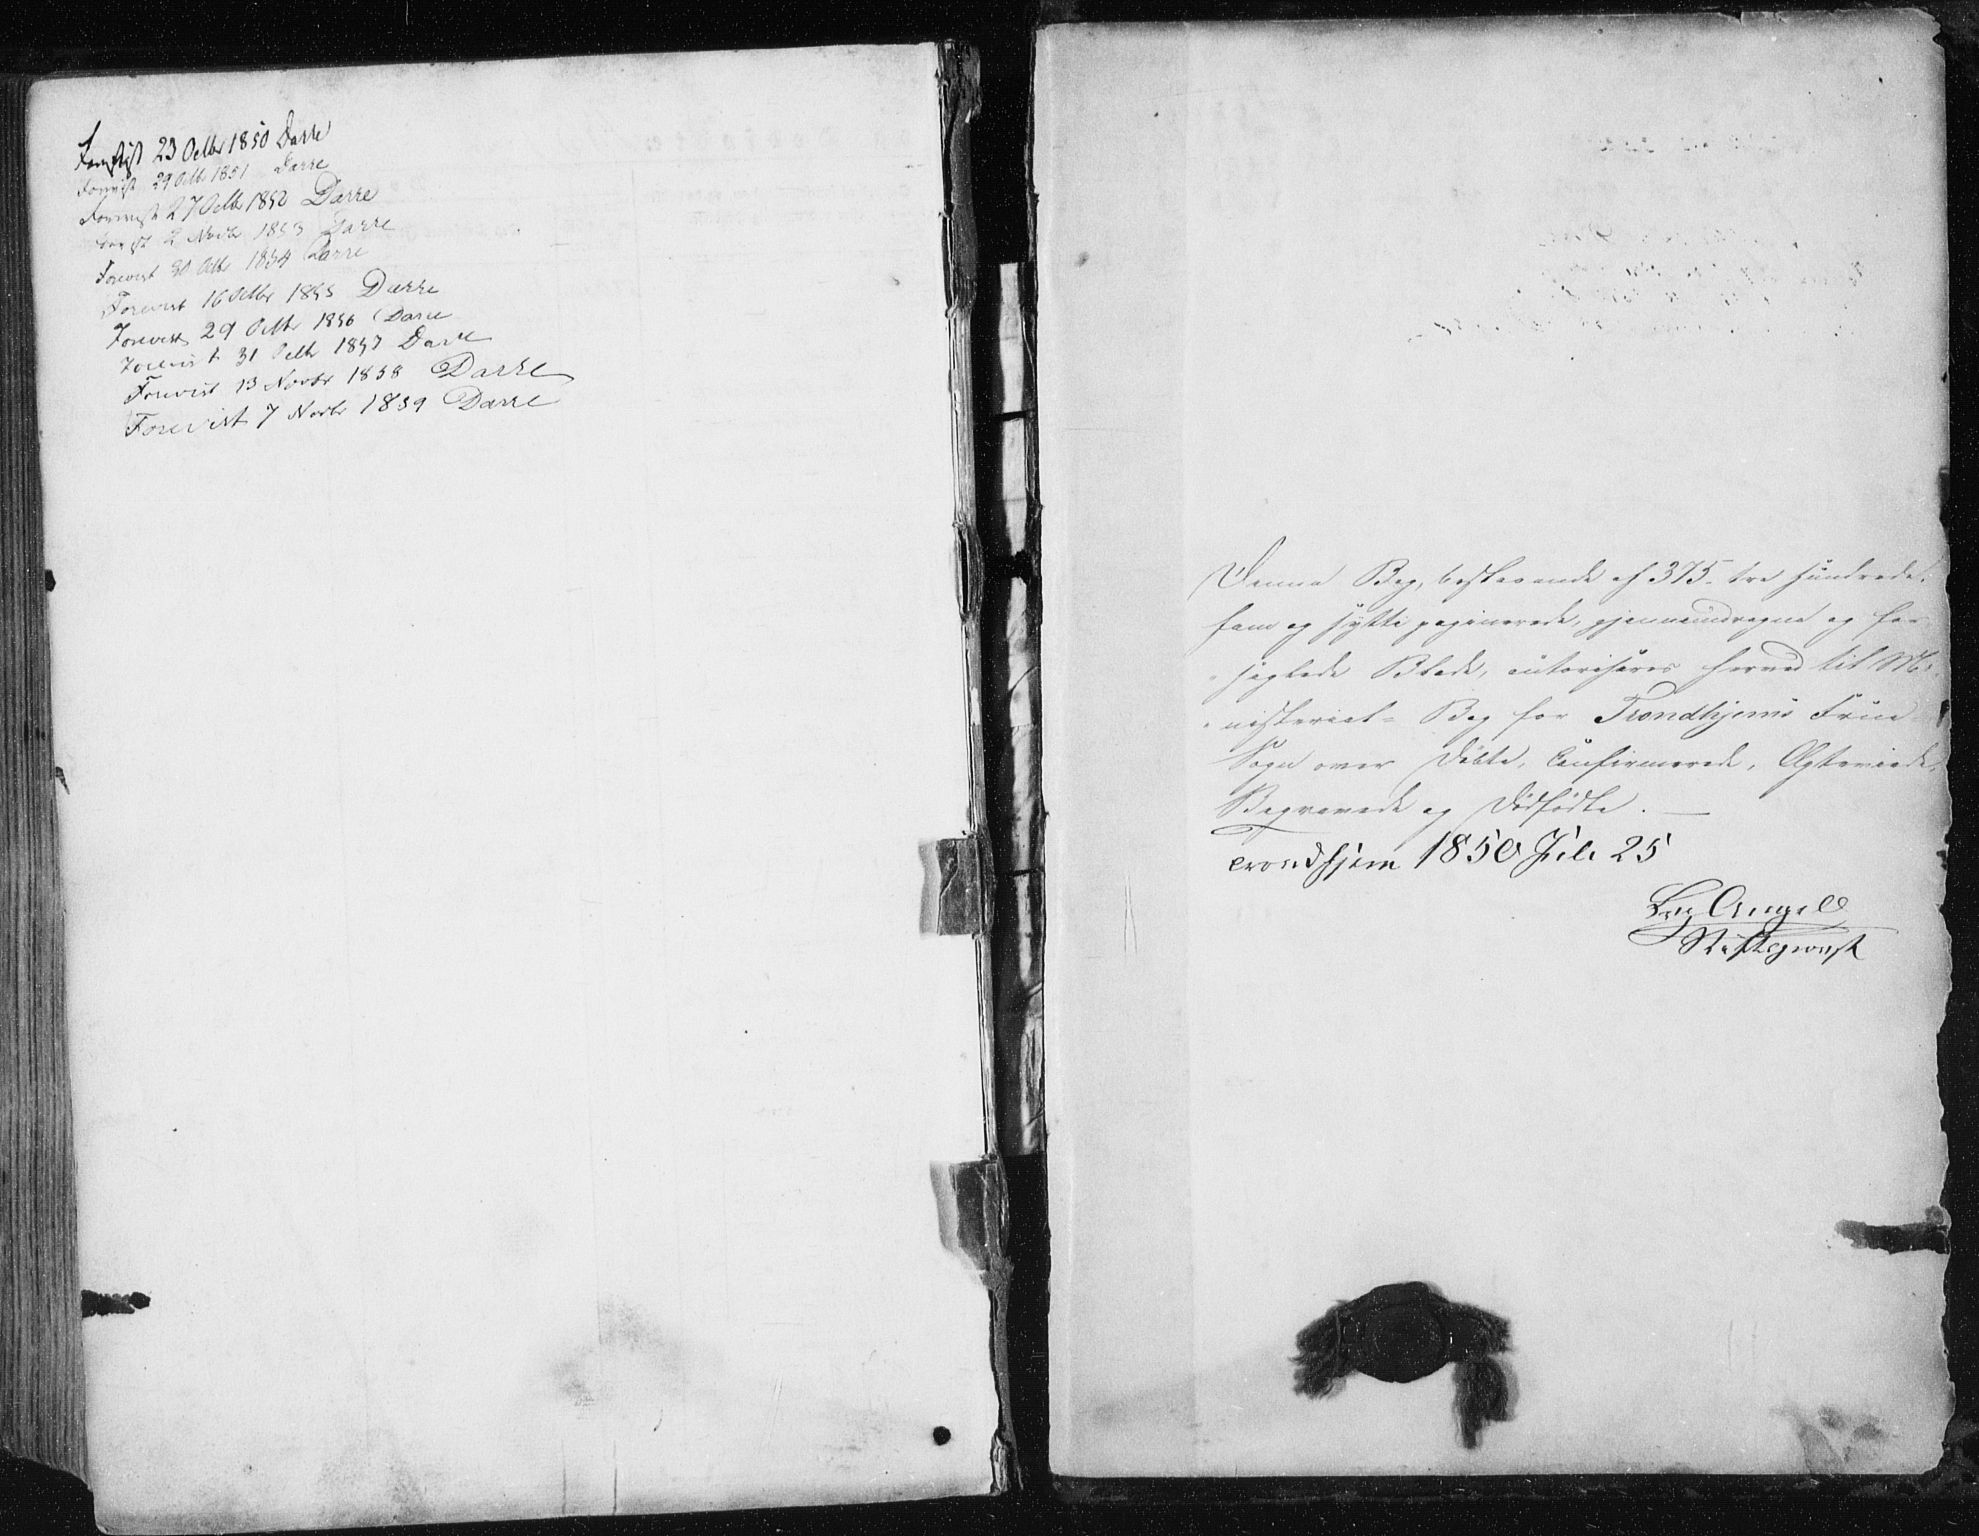 Forevist 23 Octbr 1850 Darre
Forevist 29 Octbr 1851 Darre
Forevist 27 Octbr 1852 Darre
Forevist 2 Novbr 1853 Darre
Forevist 30 Octbr 1854 Darre
Forevist 16 Octbr 1855 Darre
Forevist 29 Octbr 1856 Darre
Forevist 31 Octbr 1857 Darre
Forevist 13 Novbr 1858 Darre
Forevist 7 Novbr 1859 Darre
Denne Bog, bestaaende af 375 - tre hundrede,
fem og sytti paginerede, gjennemdragne og for
seglede Blade, autoriseres herved til Mi-
nisterial-Bog for Trondhjems Frue
Sogn over Döbte, Confirmerede, Ægteviede,
Begravede og Dödfödte. —
Trondhjem 1850 Juli 25
Angell
Stiftsprovst